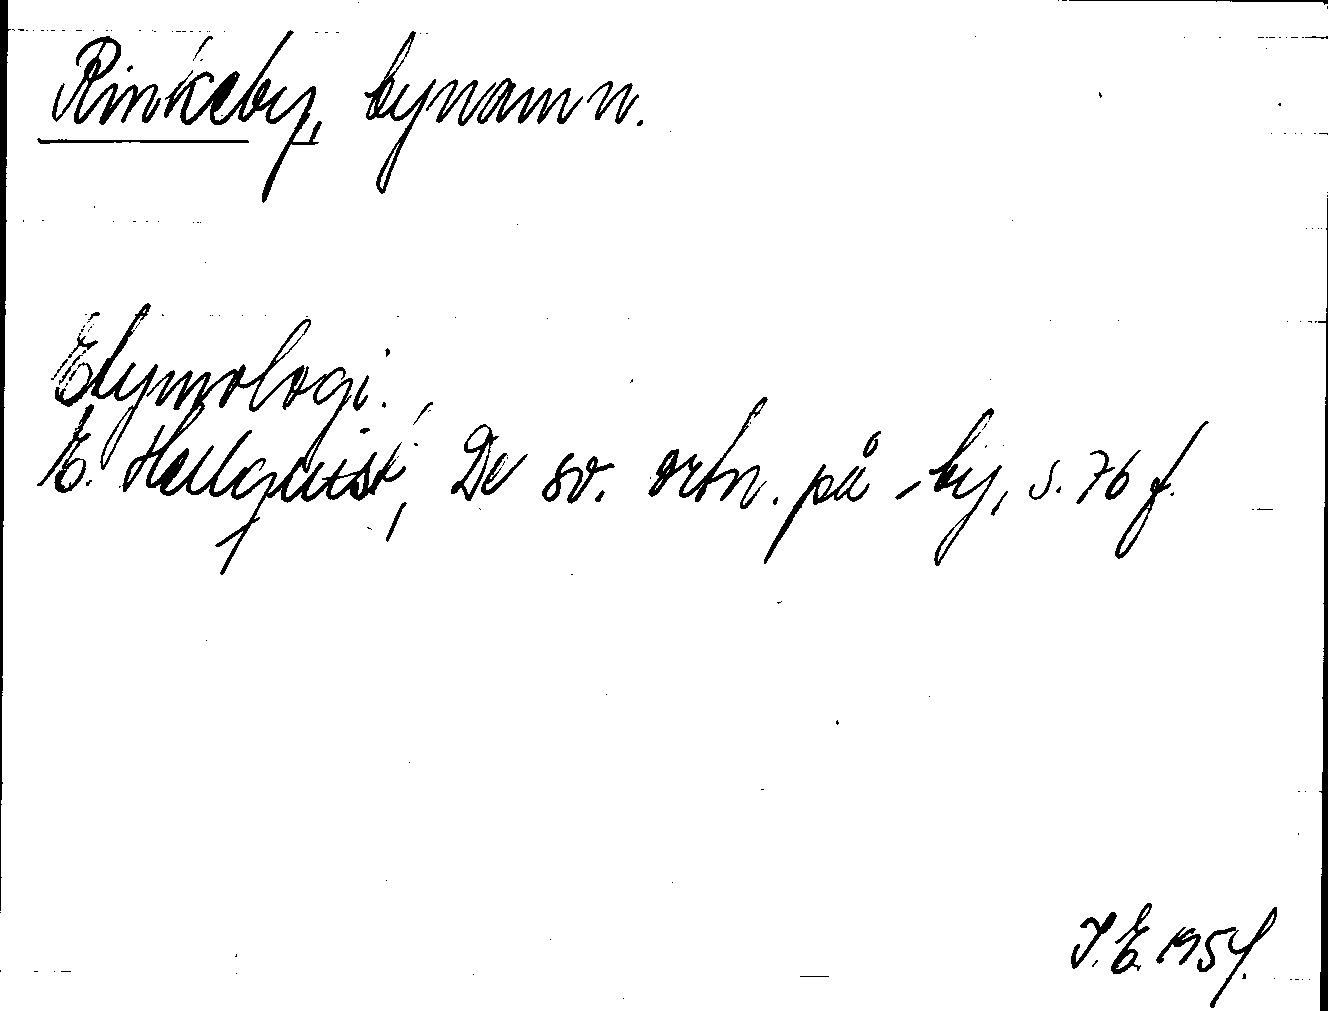 Rinkeby, bynamn.
Etymologi.
E. Hellquist, De sv. ortn. på -by, s. 76 f.
J.E. 1954.